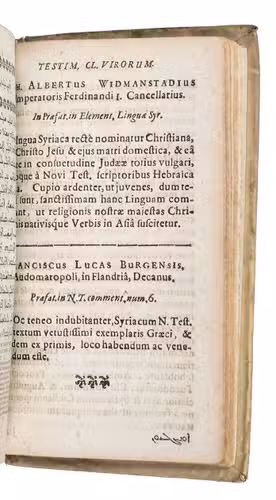 TESTIM. CL. VIRORUM.
ALBERTUS WIDMANSTADIUS
Imperatoris Ferdinandi I. Cancellarius.
In Præfat. in Element, Linguæ Syr.
ingua Syriaca rectè nominatur Christiana,
Christo Jesu & ejus matri domestica, & eâ
in consuetudine Judææ totius vulgari,
que à Novi Test. scriptoribus Hebraica
Cupio ardenter, ut juvenes, dum
sunt, sanctissimam hanc Linguam com
ut religionis nostræ maiestas Chri
nativisque Verbis in Asiâ suscitetur.
ANCISCUS LUCAS BURGENSIS,
Audomaropoli, in Flandriâ, Decanus.
Præfat. in N.T. comment, num. 6.
oc teneo indubitanter, Syriacum N. Test.
extum vetustissimi exemplaris Græci, &
dem ex primis, loco habendum ac vene
dum esse.